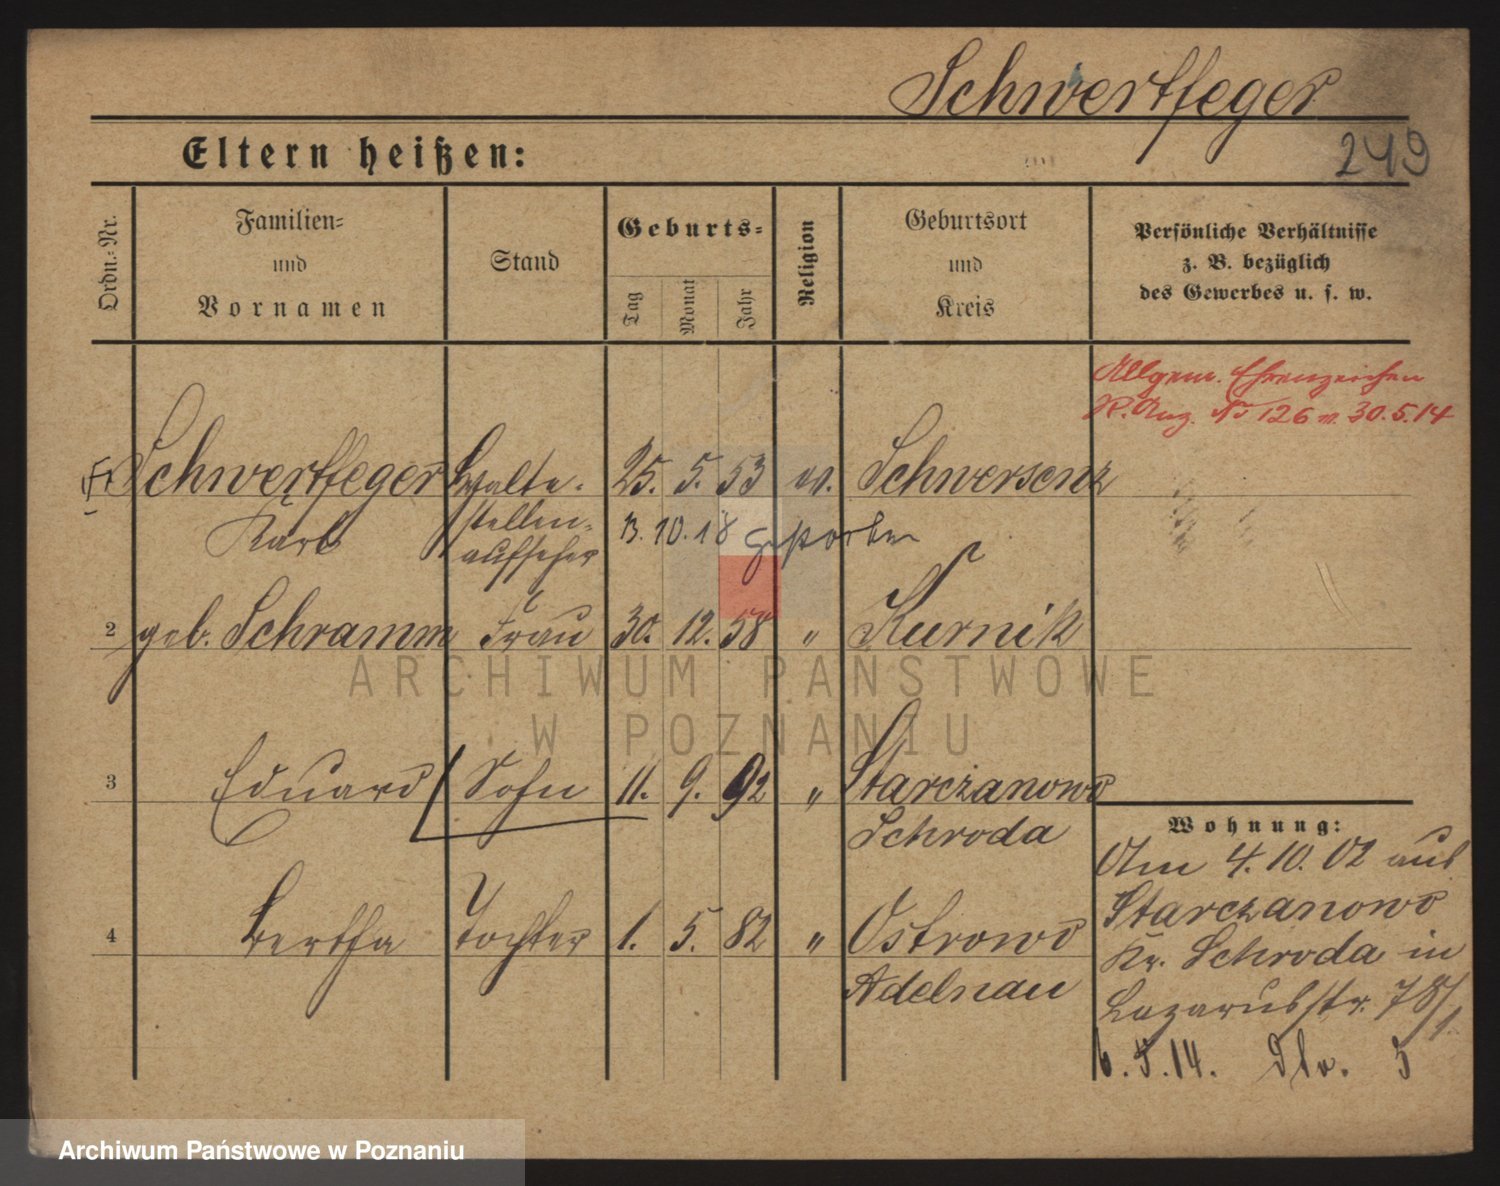 Schwertfeger
Eltern heißen:
249
Ordn.-Nr.
Familien-
und
Vornamen
Stand
Geburts-
Tag
Monat
Jahr
Religion
Geburtsort
und
Kreis
Persönliche Verhältnisse
z. B. bezüglich
des Gewerbes u. s. w.
Allgem. Ehrenzeichen
R. Anz. No 126 v. 30.5.14
Schwertfeger Halte- 25. 5. 53 ev. Schwersenz
Karl stellen- 13. 10. 18 gestorben
aufseher
2 geb. Schramm Frau 30. 12. 58 " Kurnik
ARCHIWUM PAŃSTWOWE
W POZNANIU
3 Eduard Sohn 11. 9. 92 " Starczanowo
Schroda
4 Bertha Tochter 1. 5. 82 " Ostrowo
Adelnau
Wohnung:
Am 4.10.02 aus
Starczanowo
Kr. Schroda in
Lazarusstr. 78/1.
6.5.14. 5
Archiwum Państwowe w Poznaniu